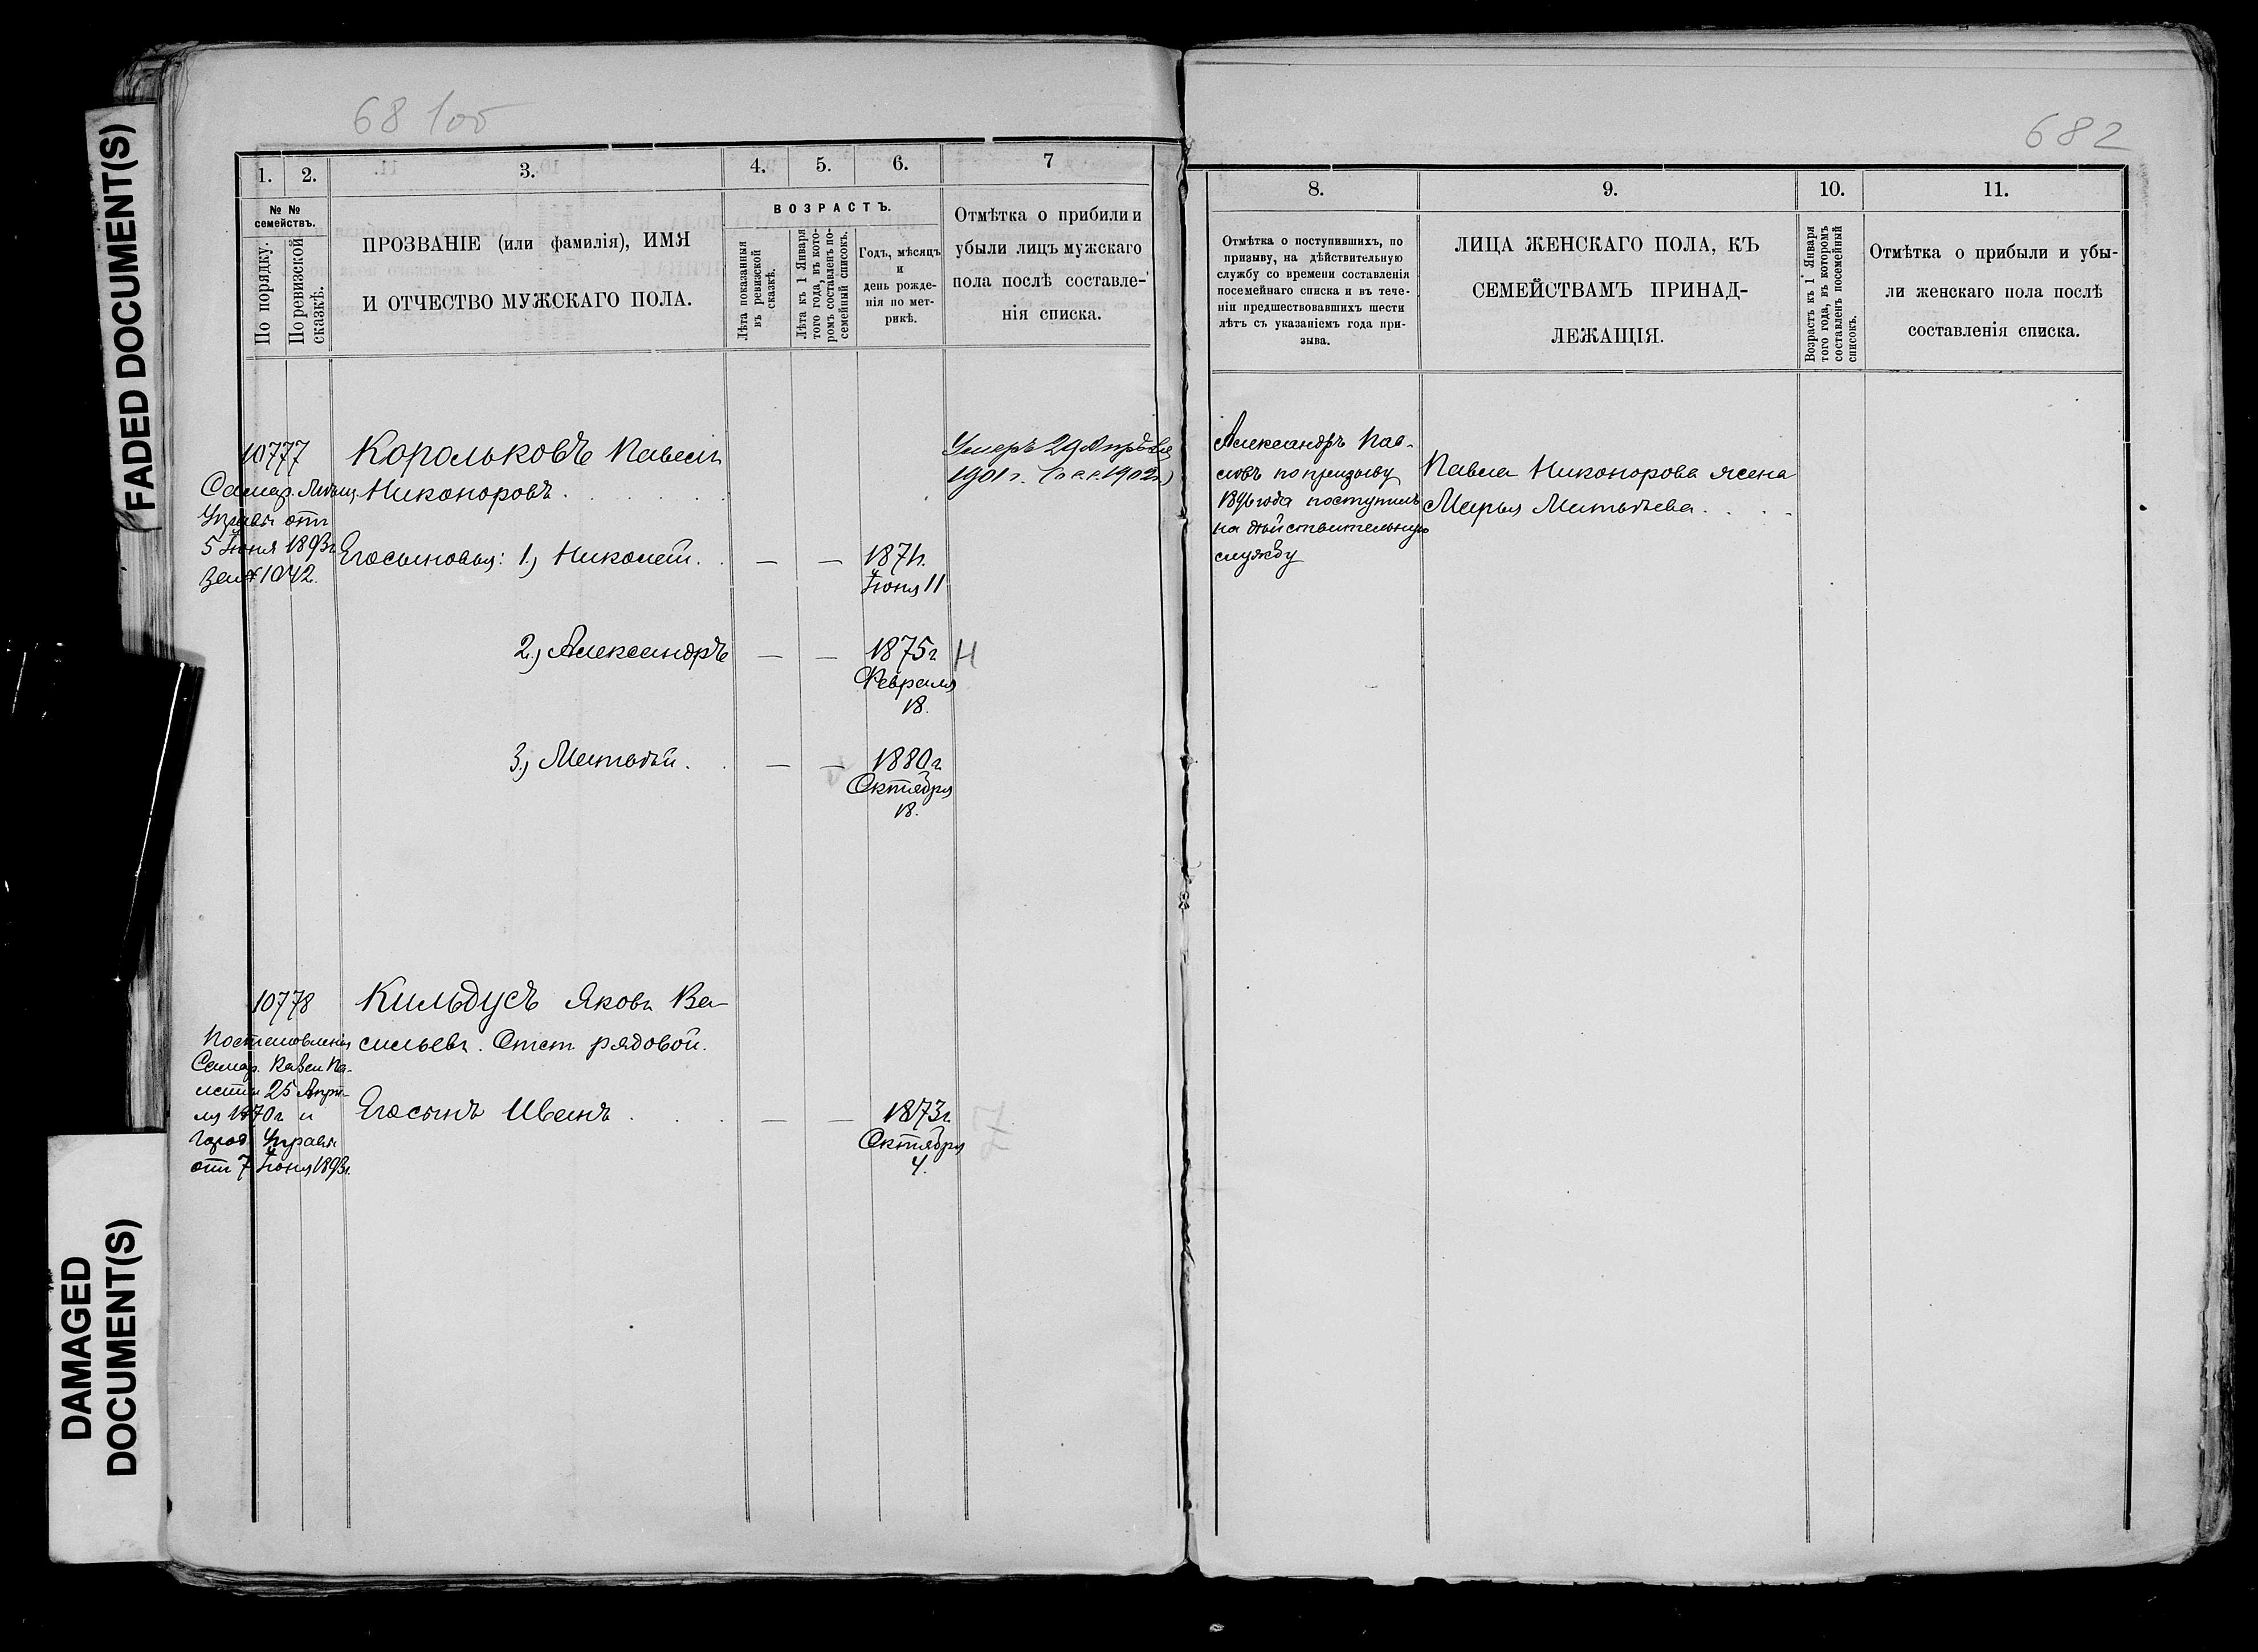 FADED DOCUMENT(S)
DAMAGED
DOCUMENT(S)
681об
682
1.
2.
3.
4.
5.
6.
7
№ №
семействъ.
По порядку.
По ревизской
сказкѣ.
ПРОЗВАНІЕ (или фамилія), ИМЯ
И ОТЧЕСТВО МУЖСКАГО ПОЛА.
ВОЗРАСТЪ.
Лѣта показанныя
въ ревизской
сказкѣ.
Лѣта къ 1 Января
того года, въ кото-
ромъ составленъ по-
семейный списокъ.
Годъ, мѣсяцъ
и
день рожде-
нія по мет-
рикѣ.
Отмѣтка о прибыли и
убыли лицъ мужскаго
пола послѣ составле-
нія списка.
10777
Самар. Мѣщ.
Управы отъ
5 Іюня 1893г.
за № 1042.
Корольковъ Павелъ
Никоноровъ.
Его сыновья: 1.) Николай.
1871г.
Іюня 11
2.) Александръ
1875г.
Февраля
18.
Н
3.) Матвѣй.
1880г.
Октября
18.
Умеръ 29 Апрѣля
1901 г.
10778
Постановленія
Самар. Казен. Па-
латы 25 Апрѣ-
ля 1870г. и
Город. Управы
отъ 7 Іюня 1893г.
Кильдусъ Яковъ Ва-
сильевъ. Отст. рядовой.
Его сынъ Иванъ
1873г.
Октября
4.
8.
9.
10.
11.
Отмѣтка о поступившихъ, по
призыву, на дѣйствительную
службу со времени составленія
посемейнаго списка и въ тече-
ніи предшествовавшихъ шести
лѣтъ съ указаніемъ года при-
зыва.
ЛИЦА ЖЕНСКАГО ПОЛА, КЪ
СЕМЕЙСТВАМЪ ПРИНАД-
ЛЕЖАЩІЯ.
Возрастъ къ 1 Января
того года, въ которомъ
составленъ посемейный
списокъ.
Отмѣтка о прибыли и убы-
ли женскаго пола послѣ
составленія списка.
Александръ Пав-
ловъ по призыву
1896 года поступилъ
на дѣйствительную
службу
Павла Никонорова жена
Марья Матвѣева.